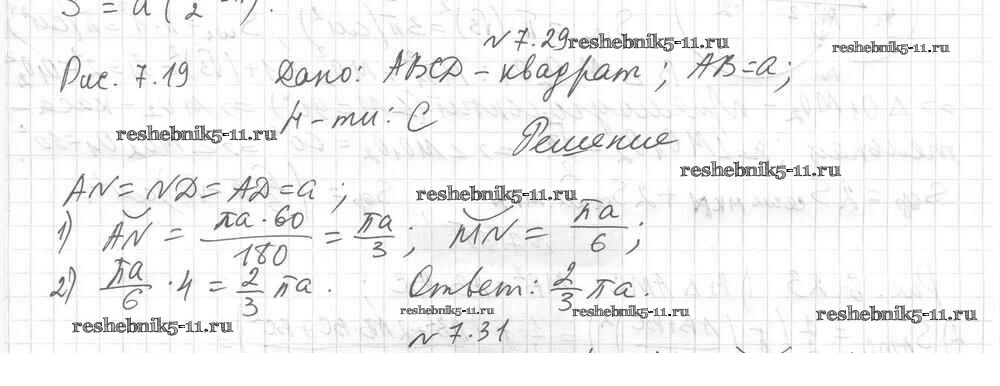 S = a(2
№ 7.29 reshebnik5-11.ru
reshebnik5-11.ru
Рис. 7.19 Дано: ABCD - квадрат; AB=a;
Н-ти: C
reshebnik5-11.ru
Решение
reshebnik5-11.ru
AN = ND = AD = a;
reshebnik5-11.ru
1) ◡AN = πa·60/180 = πa/3; ◡MN = πa/6;
2) πa/6 · 4 = 2/3 πa. Ответ: 2/3 πa.
reshebnik5-11.ru
reshebnik5-11.ru
reshebnik5-11.ru
reshebnik5-11.ru
№ 7.31